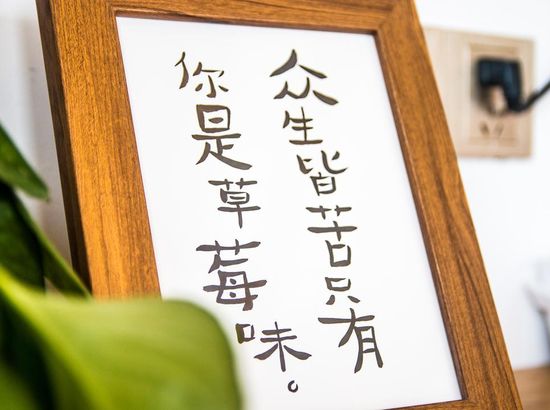 众生皆苦只有
你是草莓味。